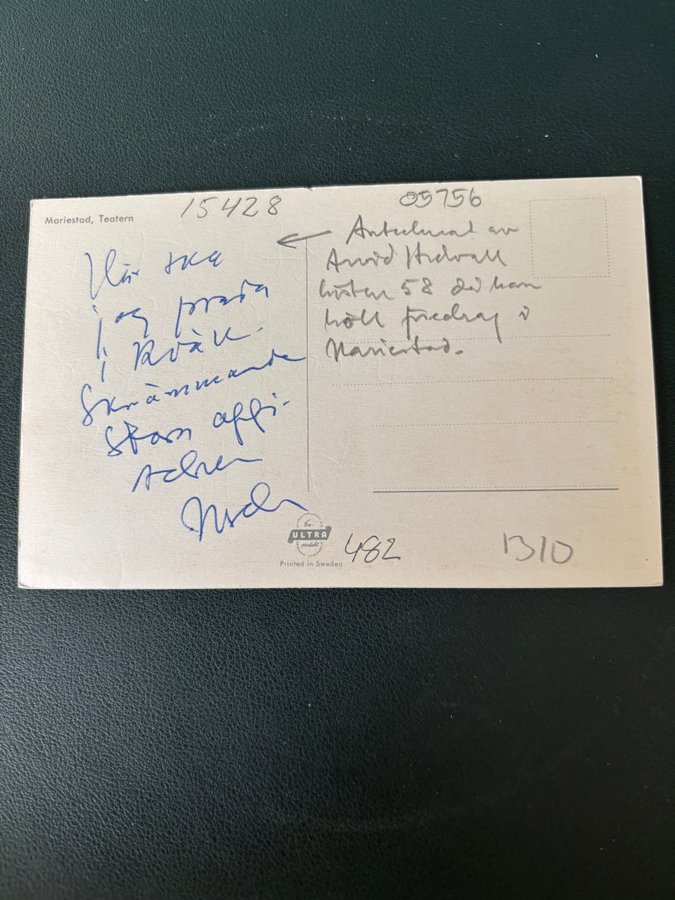 Mariestad, Teatern
15428
05756
Här ska
jag prata
i kväll.
Skrämmande
stora affi-
scher
Antecknat av
Arvid
hösten 58 då han
höll föredrag i
Mariestad.
En
ULTRA
produkt
Printed in Sweden
482
1310